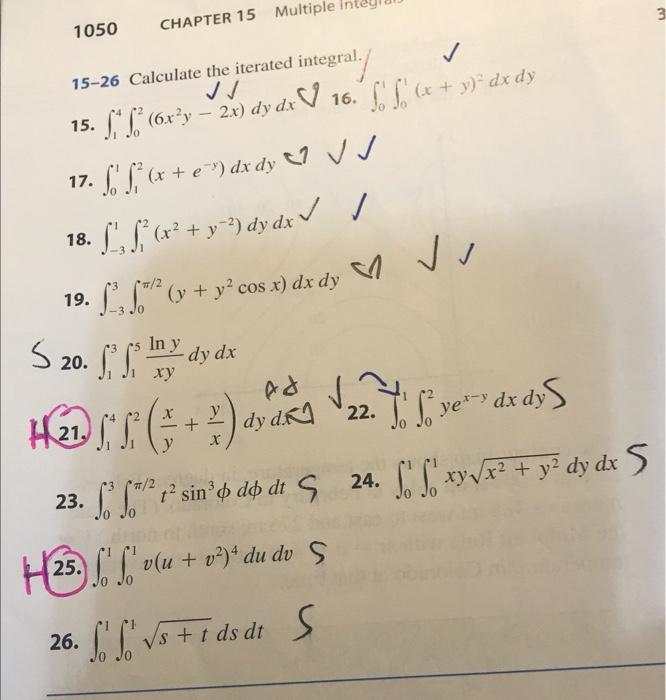 1050 CHAPTER 15 Multiple
3
15–26 Calculate the iterated integral.
15. ∫₁⁴ ∫₀² (6x²y − 2x) dy dx 16. ∫₀¹ ∫₀¹ (x + y)² dx dy
17. ∫₀¹ ∫₁² (x + e⁻ʸ) dx dy
18. ∫₋₃¹ ∫₁² (x² + y⁻²) dy dx
19. ∫₋₃³ ∫₀^(π/2) (y + y² cos x) dx dy
S 20. ∫₁³ ∫₁⁵ (ln y)/(xy) dy dx
H 21. ∫₁⁴ ∫₁² (x/y + y/x) dy dx 22. ∫₀¹ ∫₀² ye^(x−y) dx dy S
23. ∫₀³ ∫₀^(π/2) t² sin³ϕ dϕ dt S 24. ∫₀¹ ∫₀¹ xy√(x² + y²) dy dx S
H 25. ∫₀¹ ∫₀¹ v(u + v²)⁴ du dv S
26. ∫₀¹ ∫₀¹ √(s + t) ds dt S